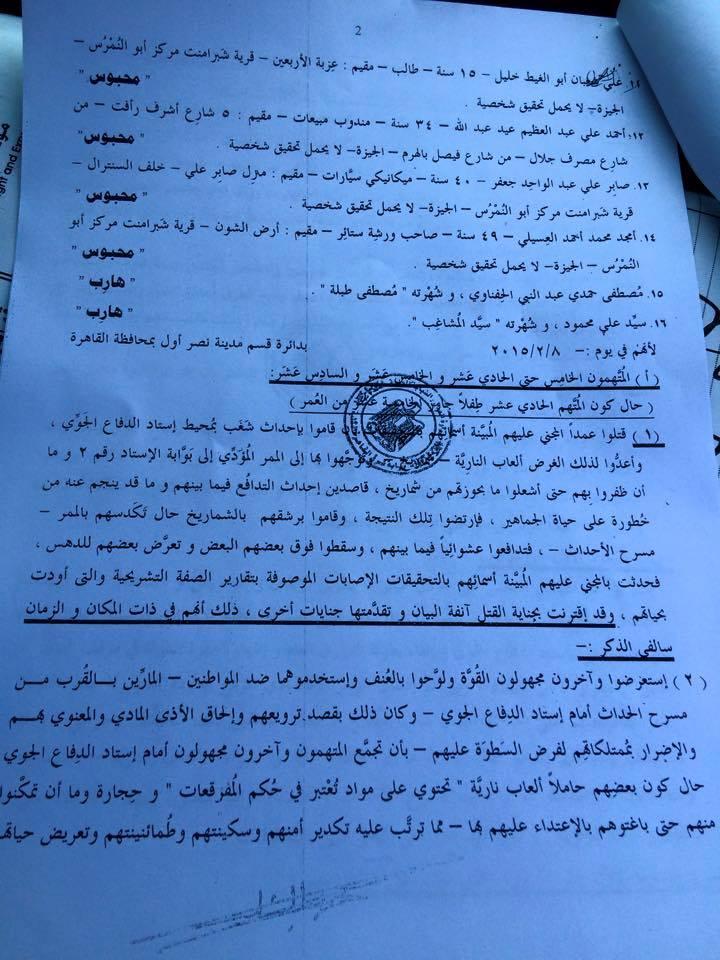 2
١١. علي شعبان أبو الغيط خليل – ١٥ سنة – طالب – مقيم : عِزبة الأربعين – قرية شَبرامنت مركز أبو النُمْرُس –
الجيزة – لا يحمل تحقيق شخصية .
" محبوس "
١٢. أحمد علي عبد العظيم عيد عبد الله – ٣٤ سنة – مندوب مبيعات – مقيم : ٥ شارع أشرف رأفت – من
شارع مصرف جلال – من شارع فيصل بالهرم – الجيزة – لا يحمل تحقيق شخصية .
" محبوس "
١٣. صابر علي عبد الواجد جعفر – ٤٠ سنة – ميكانيكي سيَّارات – مقيم : منزل صابر علي – خلف السنترال –
قرية شَبرامنت مركز أبو النُمْرُس – الجيزة – لا يحمل تحقيق شخصية .
" محبوس "
١٤. أمجد محمد أحمد العِسيلي – ٤٩ سنة – صاحب ورشة ستائر – مقيم : أرض الشون – قرية شَبرامنت مركز أبو
النُمْرُس – الجيزة – لا يحمل تحقيق شخصية .
" محبوس "
١٥. مُصطفى حمدي عبد النبي الحِفناوي ، و شُهْرته " مُصطفى طبلة " .
" هارب "
١٦. سيِّد علي محمود ، و شُهْرته " سيِّد المُشاغب ".
" هارب "
لأنهُم في يوم :– ٢٠١٥/٢/٨ بدائرة قسم مدينة نصر أول بمحافظة القاهرة
( أ ) المُتَّهمون الخامِس حتى الحادي عَشَر و الخامِس عَشَر و السادِس عَشَر:
( حال كون المُتَّهم الحادي عشر طِفلاً جاوز الخامسة عشر من العُمر )
( ١ ) قتلوا عمداً المجني عليهم المُبيَّنة أسمائهم قاموا بإحداث شَغَب بمُحيط إستاد الدفاع الجوي ،
وأعدُّوا لذلك الغرض ألعاب الناريَّة – وتوجَّهوا بها إلى الممر المُؤدِّي إلى بوَّابة الإستاد رقم ٢ و ما
أن ظفروا بهم حتى أشعلوا ما بحوزتهم من شماريخ ، قاصدين إحداث التدافُع فيما بينهم و ما قد ينجم عنه من
خُطورة على حياة الجماهير ، فإرتضوا تِلك النتيجة ، وقاموا برشقهم بالشماريخ حال تَكَدسهم بالممر –
مسرح الأحداث – ، فتدافعوا عشوائياً فيما بينهم ، وسقطوا فوق بعضهم البعض و تعرَّض بعضهم للدهس ،
فحدثت بالمجني عليهم المُبيَّنة أسمائهم بالتحقيقات الإصابات الموصوفة بتقارير الصفة التشريحية والتى أودت
بحياتهم ، وقد إقترنت بجناية القتل آنفة البيان و تقدَّمتها جنايات أخرى ، ذلك أنهم في ذات المكان و الزمان
سالفي الذكر :–
( ٢ ) إستعرضوا وآخرون مجهولون القُوَّة ولوَّحوا بالعُنف وإستخدموهما ضد المواطنين – المارِّين بالقُرب من
مسرح الحداث أمام إستاد الدِفاع الجوي – وكان ذلك بقصد ترويعهم وإلحاق الأذى المادي والمعنوي بهم
والإضرار بمُمتلكاتهم لفرض السَطوَة عليهم – بأن تجمَّع المتهمون وآخرون مجهولون أمام إستاد الدِفاع الجوي
حال كون بعضهم حاملاً ألعاب ناريَّة " تحتوي على مواد تُعْتبر في حُكم المُفرقعات " و حِجارة وما أن تمكَّنوا
منهم حتى باغتوهم بالإعتداء عليهم بها – مما ترتَّب عليه تكدير أمنهم وسكينتهم وطُمأنينتهم وتعريض حياتهم